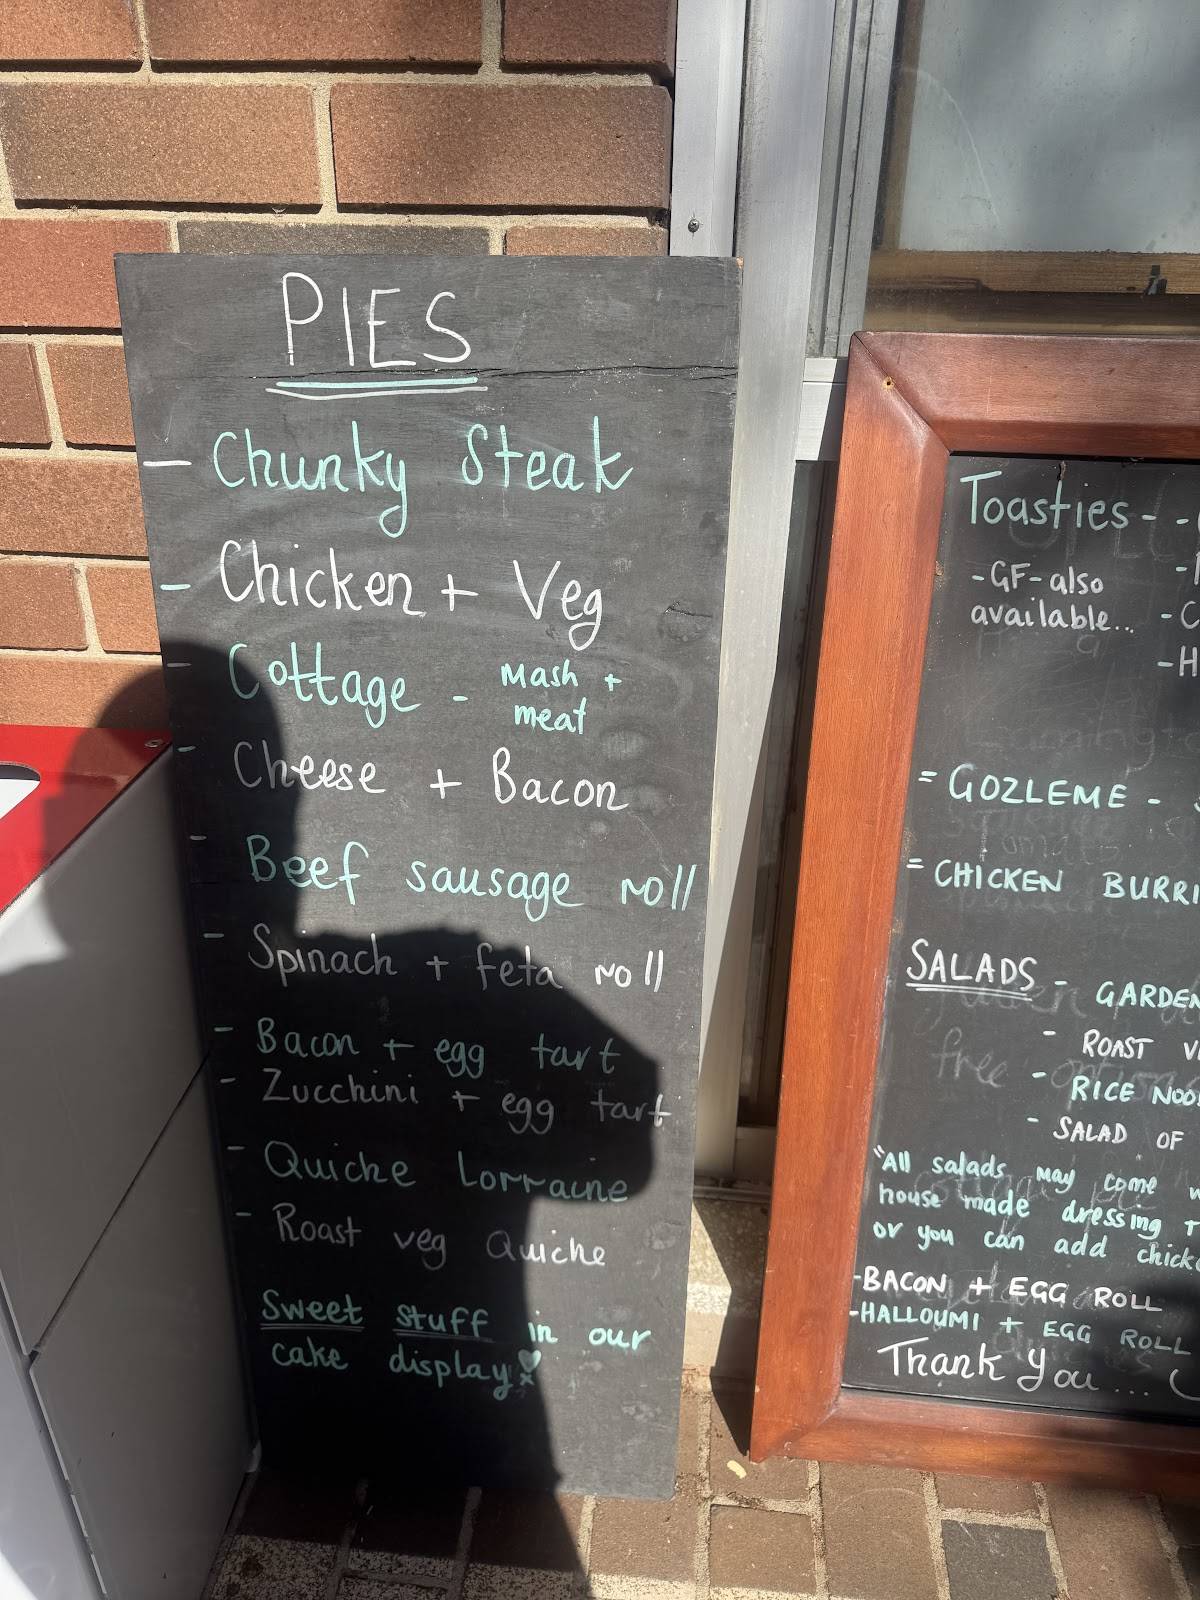 PIES
- Chunky Steak
- Chicken + Veg
- Cottage - Mash +
meat
- Cheese + Bacon
- Beef sausage roll
- Spinach + feta roll
- Bacon + egg tart
- Zucchini + egg tart
- Quiche Lorraine
- Roast veg Quiche
Sweet stuff in our
cake display!
Toasties - -
-GF-also
available...
= GOZLEME -
= CHICKEN
SALADS - GARDEN
- ROAST
- RICE
- SALAD OF
"All salads may come
house made dressing
or you can add
-BACON + EGG ROLL
-HALLOUMI + EGG ROLL
Thank you...